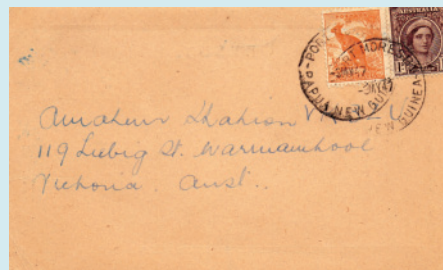 AUSTRALIA
PORT MORESBY
-9MY47
-9MY47
PAPUA NEW GUINEA
NEW GUINEA
Amateur Station VK
119 Liebig St. Warrnambool
Victoria Aust.